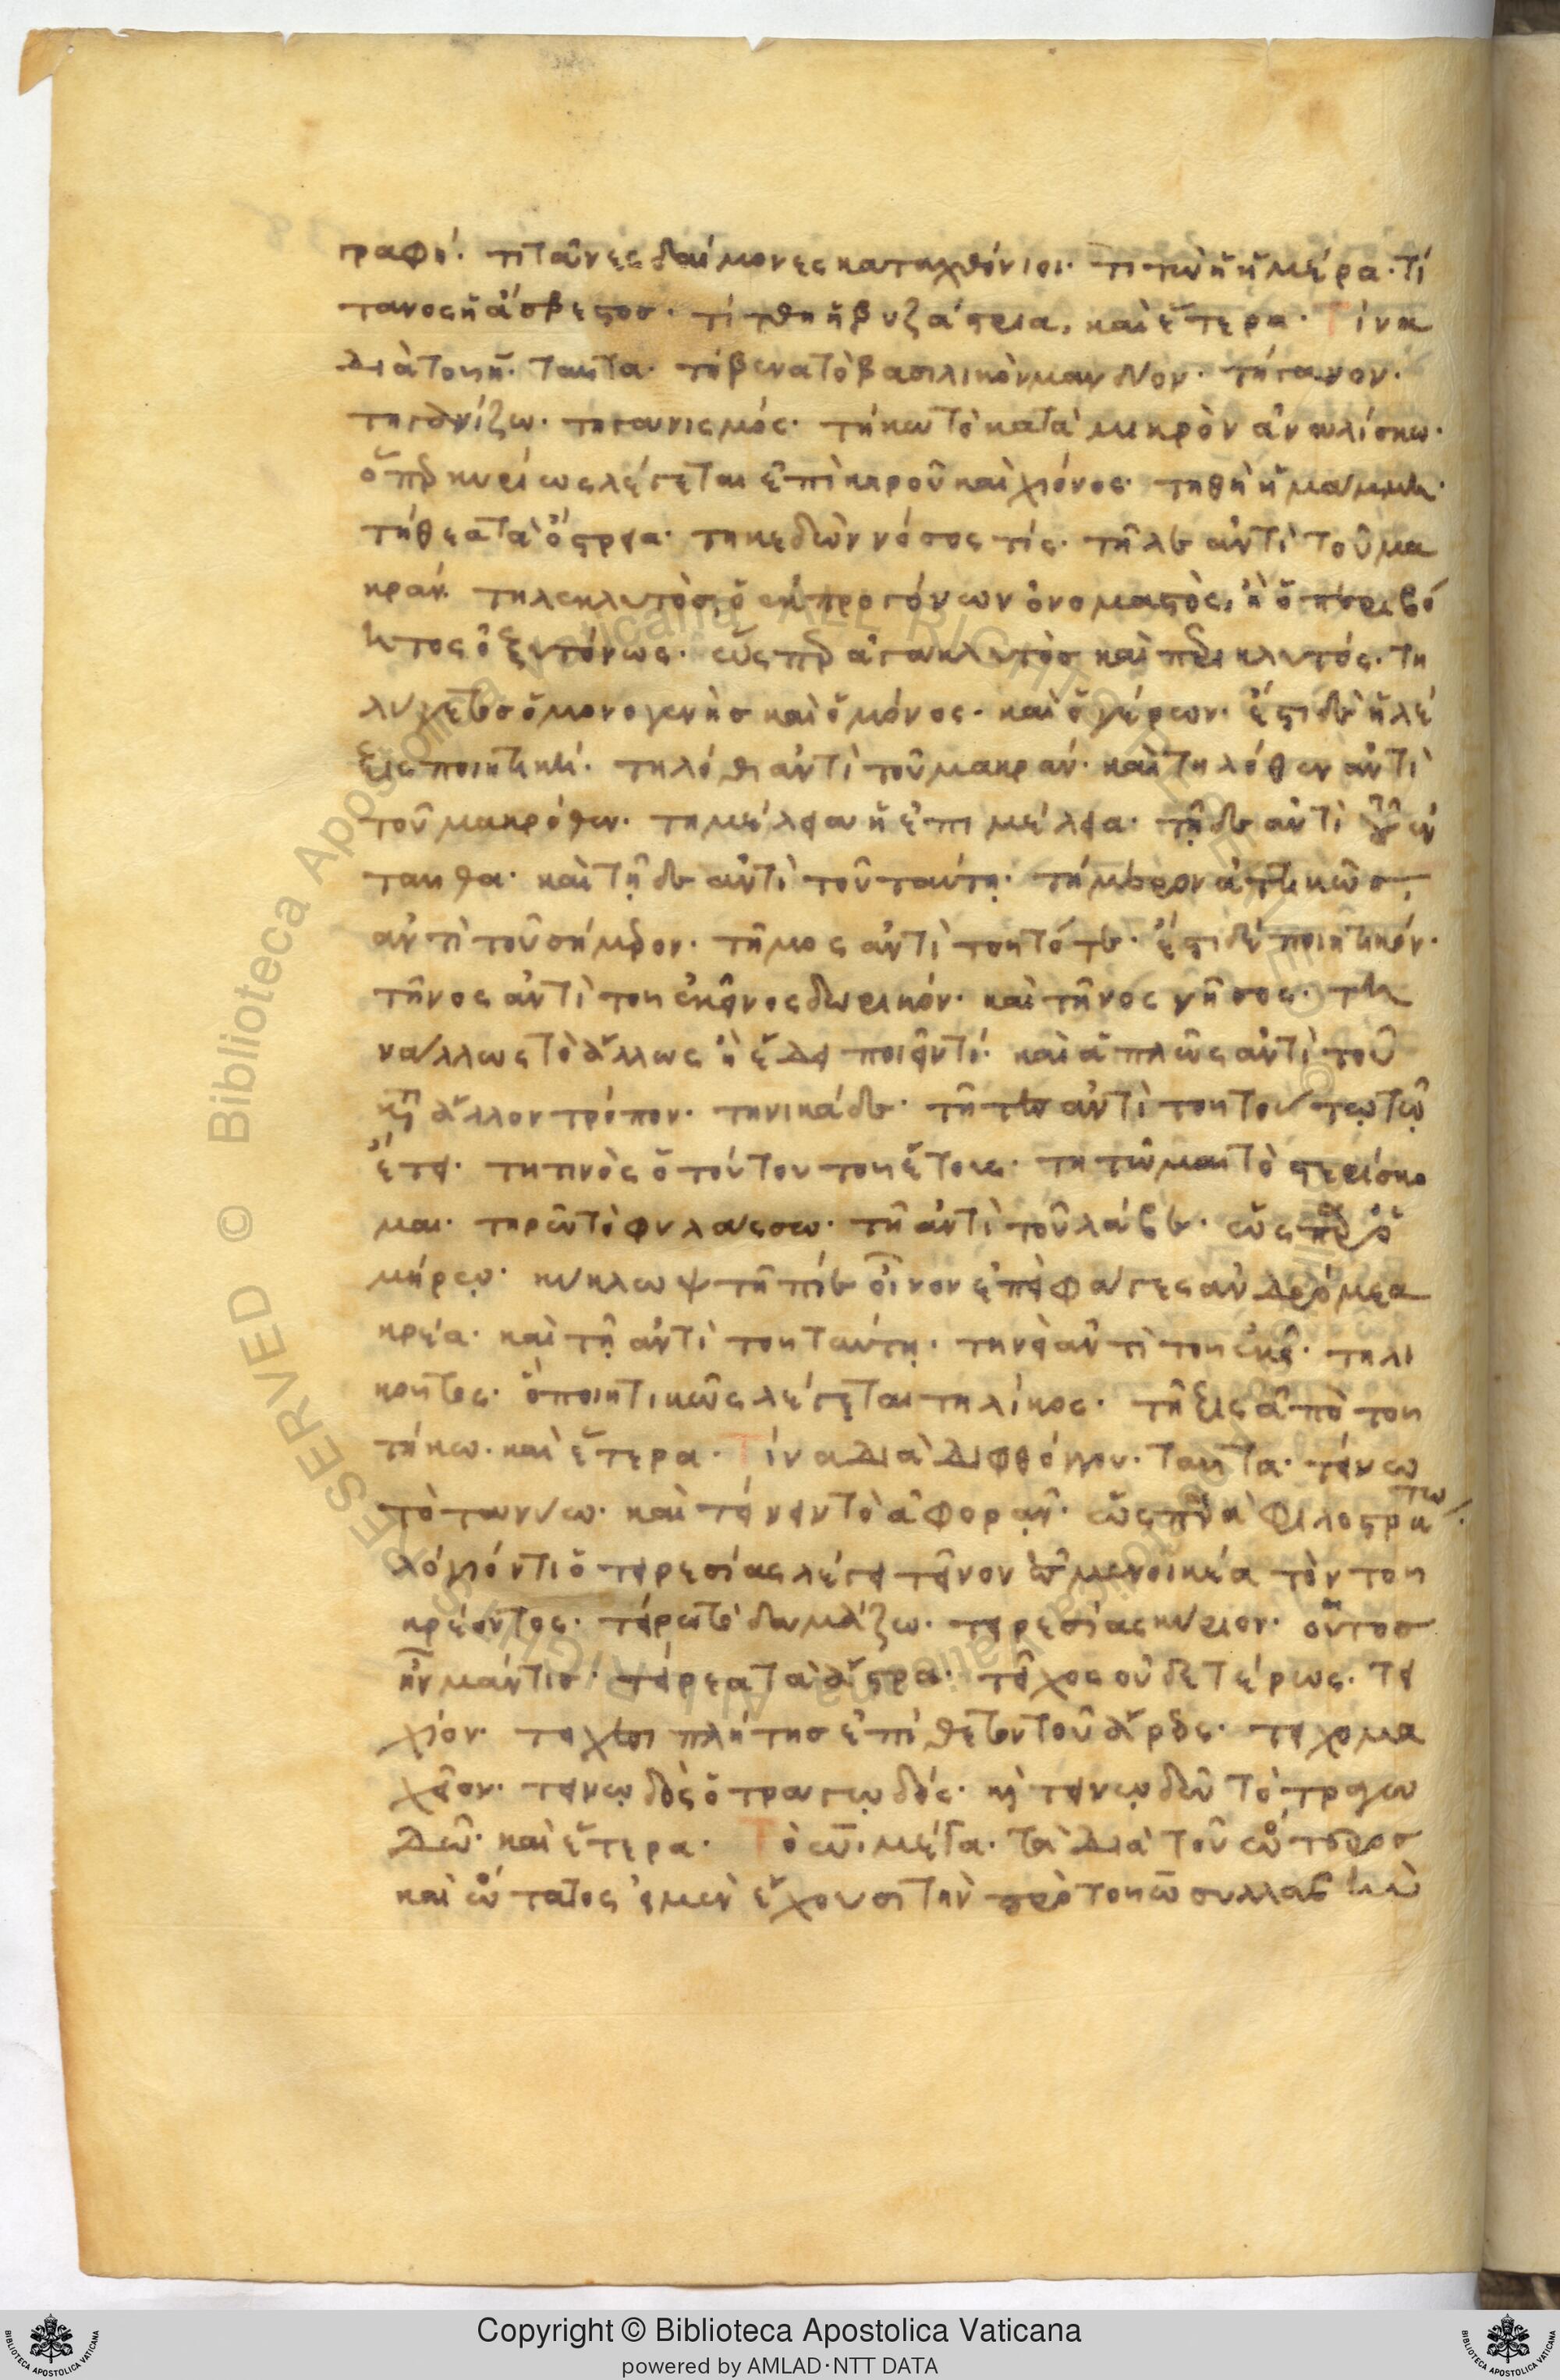 γραφή. τιτᾶνες δαίμονες καταχθόνιοι. τιτὼ ἡ ἡμέρα. τί
τανος ἡ ἄσβεστος. τίτθη ἡ βυζάστρια, καὶ ἕτερα. Τινὰ
διὰ τοῦ η. ταῦτα. τήβεννα τὸ βασιλικὸν μανδύον. τήγανον.
τηγανίζω. τηγανισμός. τήκω τὸ κατὰ μικρὸν ἀναλίσκω.
ὅπερ κυρίως λέγεται ἐπὶ κηροῦ καὶ χιόνος. τηθὴ ἡ μάμμη.
τήθεα τὰ ὄστρεα. τηκεδὼν νόσος τίς. τῆλε ἀντὶ τοῦ μα
κράν. τηλεκλυτὸς, ὁ ἐκ προγόνων ὀνομαστὸς, ἢ ὁ περιβό
ητος ὀξυτόνως. ὥσπερ ἀγακλυτὸς καὶ περικλυτός. τη
λύγετος ὁ μονογενὴς καὶ ὁ μόνος. καὶ ὁ γέρων. ἔστι δὲ ἡ λέ
ξις ποιητική. τηλόθι ἀντὶ τοῦ μακράν. καὶ τηλόθεν ἀντὶ
τοῦ μακρόθεν. τημέλεια ἡ ἐπιμέλεια. τῇδε ἀντὶ τοῦ ἐν
ταῦθα. καὶ τῇδε ἀντὶ τοῦ ταύτῃ. τήμερον ἀττικῶς,
ἀντὶ τοῦ σήμερον. τῆμος ἀντὶ τοῦ τότε. ἔστι δὲ ποιητικόν.
τῆνος ἀντὶ τοῦ ἐκεῖνος δωρικόν. καὶ τῆνος νῆσος. τη
νάλλως τὸ ἄλλως ἢ ἔδει ποιεῖν τί. καὶ ἁπλῶς ἀντὶ τοῦ
κατ ἄλλον τρόπον. τηνικάδε. τῆτες ἀντὶ τοῦ τούτῳ τῷ
ἔτει. τητινὸς ὁ τούτου τοῦ ἔτους. τητῶμαι τὸ στερίσκο
μαι. τηρῶ τὸ φυλάσσω. τῆ ἀντὶ τοῦ λάβε. ὡς παρ ὁ
μήρῳ. κύκλωψ τῆ πίε οἶνον ἐπεὶ φάγες ἀνδρόμεα
κρέα. καὶ τῇ ἀντὶ τοῦ ταύτῃ. τηνεῖ ἀντὶ τοῦ ἐκεῖ. τηλι
κοῦτος. ὃ ποιητικῶς λέγεται τηλίκος. τῆξις ἀπὸ τοῦ
τήκω. καὶ ἕτερα. Τινὰ διὰ διφθόγγου. ταῦτα. τείνω
τὸ τανύω. καὶ τείνειν τὸ ἀφορᾷν. ὡς παρὰ φιλοστράτῳ.
λόγιόν τι ὁ τειρεσίας λέγει τεῖνον ὦ μενοικέα τὸν τοῦ
κρέοντος. τείρω τὸ δαμάζω. τειρεσίας κύριον. οὗτος
ἦν μάντις. τείρεα τὰ ἄστρα. τεῖχος οὐδετέρως. τει
χίον. τειχεσιπλήτης ἐπίθετον τοῦ ἄρεος. τειχομα
χεῖον. τειν ῳδὸς ὁ τραγῳδός. καὶ τεινῳδῶ τὸ τραγω
δῶ. καὶ ἕτερα. Τὸ ω μέγα. τὰ διὰ τοῦ ώτερος
καὶ ώτατος εἰ μὲν ἔχουσι τὴν πρὸ τοῦ ω συλλαβὴν